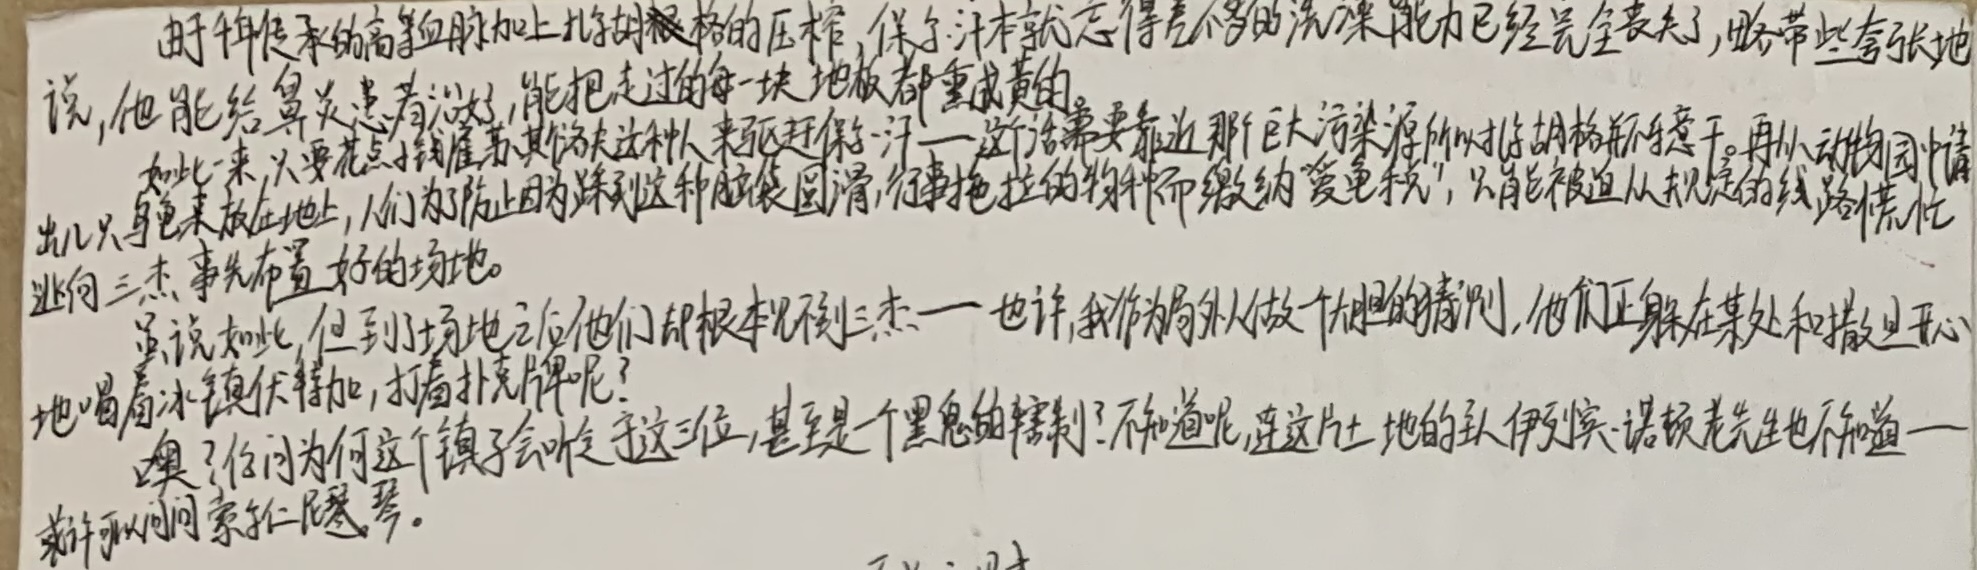 由于千年传承的高等血脉加上扎尔胡格的压榨，保尔·汁本就忘得差不多的洗澡能力已经完全丧失了，略带些夸张地
说，他能给鼻炎患者治好，能把走过的每一块地板都熏成黄的。
如此一来，只要花点小钱雇苏其洛夫这种人来驱赶保尔·汗——这个活需要靠近那个巨大污染源所以扎尔胡格并不愿意干。再从动物园中请
出几只乌龟来放在地上，人们为了防止因为踩到这种脑袋圆滑，行事拖拉的物种而缴纳“爱龟税”，只能被迫从规定的线路慌忙
逃向三杰事先布置好的场地。
虽说如此，但到了场地之后他们却根本见不到三杰——也许，我作为局外人做一个大胆的猜测，他们正躲在某处和撒旦开心
地喝着冰镇伏特加，打着扑克牌呢？
噢？你问为何这个镇子会听定于这三位，甚至是一个黑鬼的辖制？不知道呢，连这片土地的主人伊列宾·诺顿老先生也不知道——
或许可以问问索尔仁尼琴。